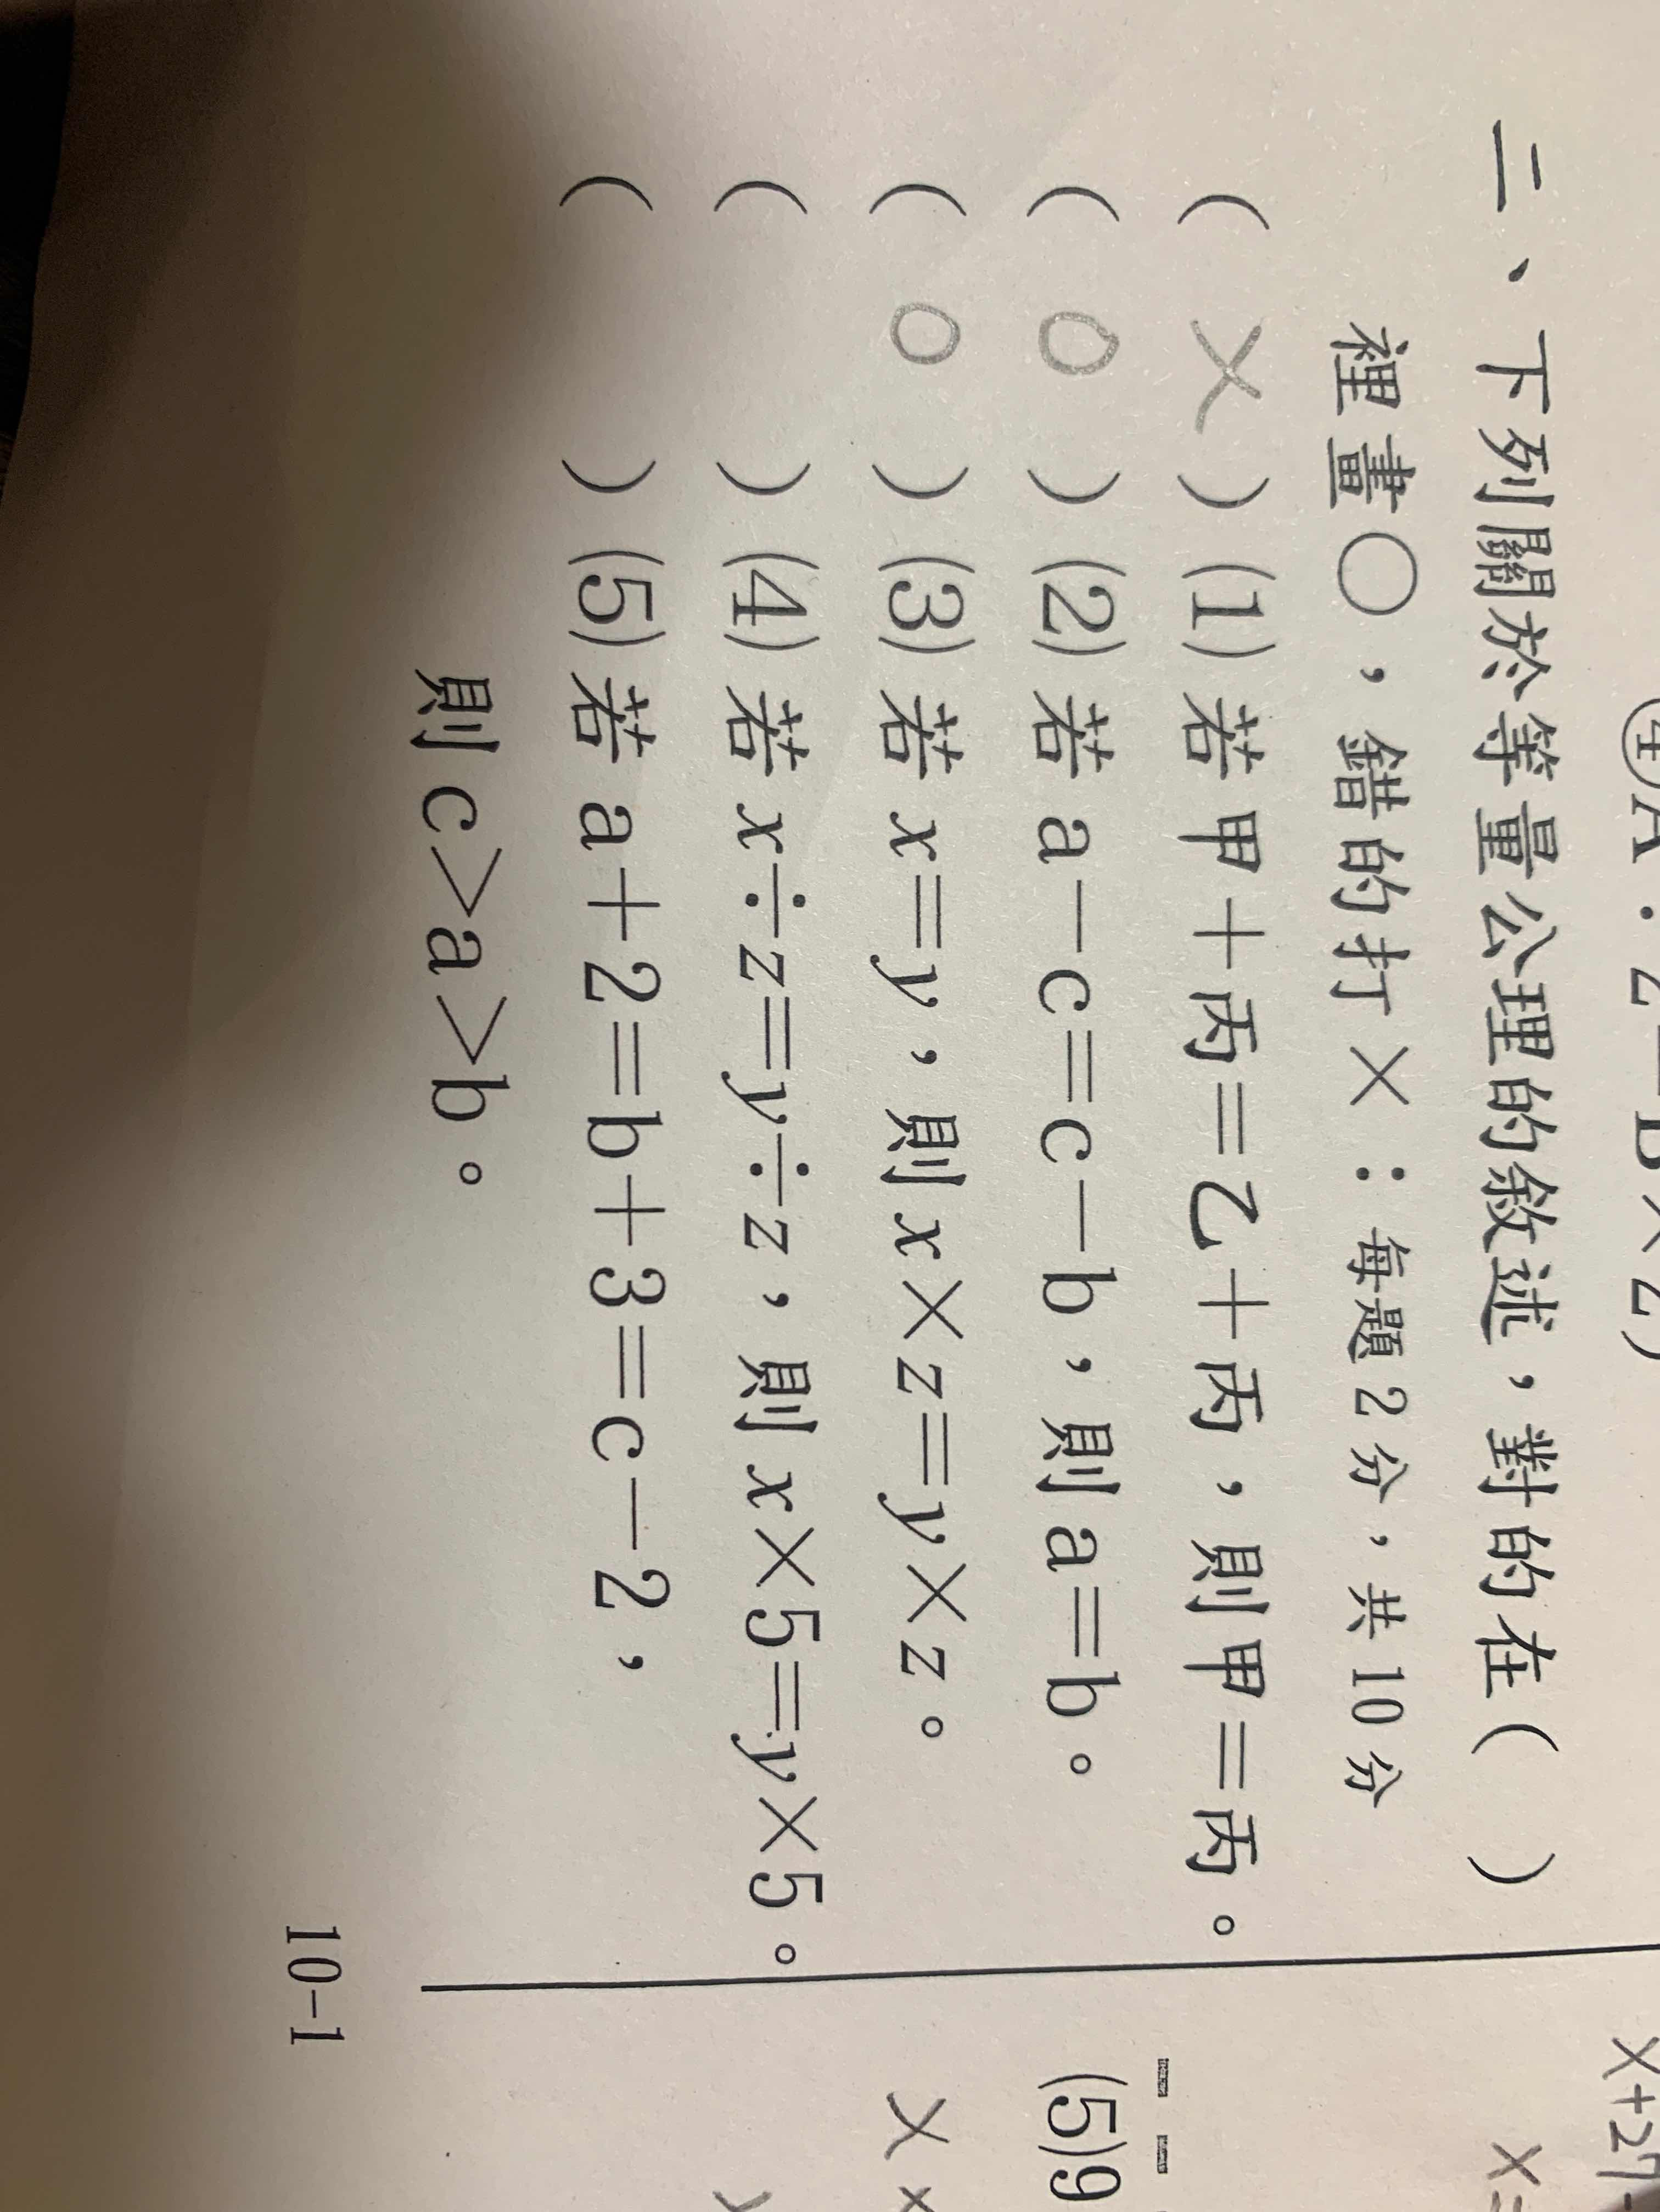 二、下列關於等量公理的敘述，對的在(　)
裡畫○，錯的打×：每題2分，共10分
( X ) (1) 若甲＋丙＝乙＋丙，則甲＝丙。
( O ) (2) 若a－c＝c－b，則a＝b。
( O ) (3) 若x＝y，則x×z＝y×z。
(　) (4) 若x÷z＝y÷z，則x×5＝y×5。
(　) (5) 若a＋2＝b＋3＝c－2，
則c＞a＞b。
10-1
x+27
x=
(5)9